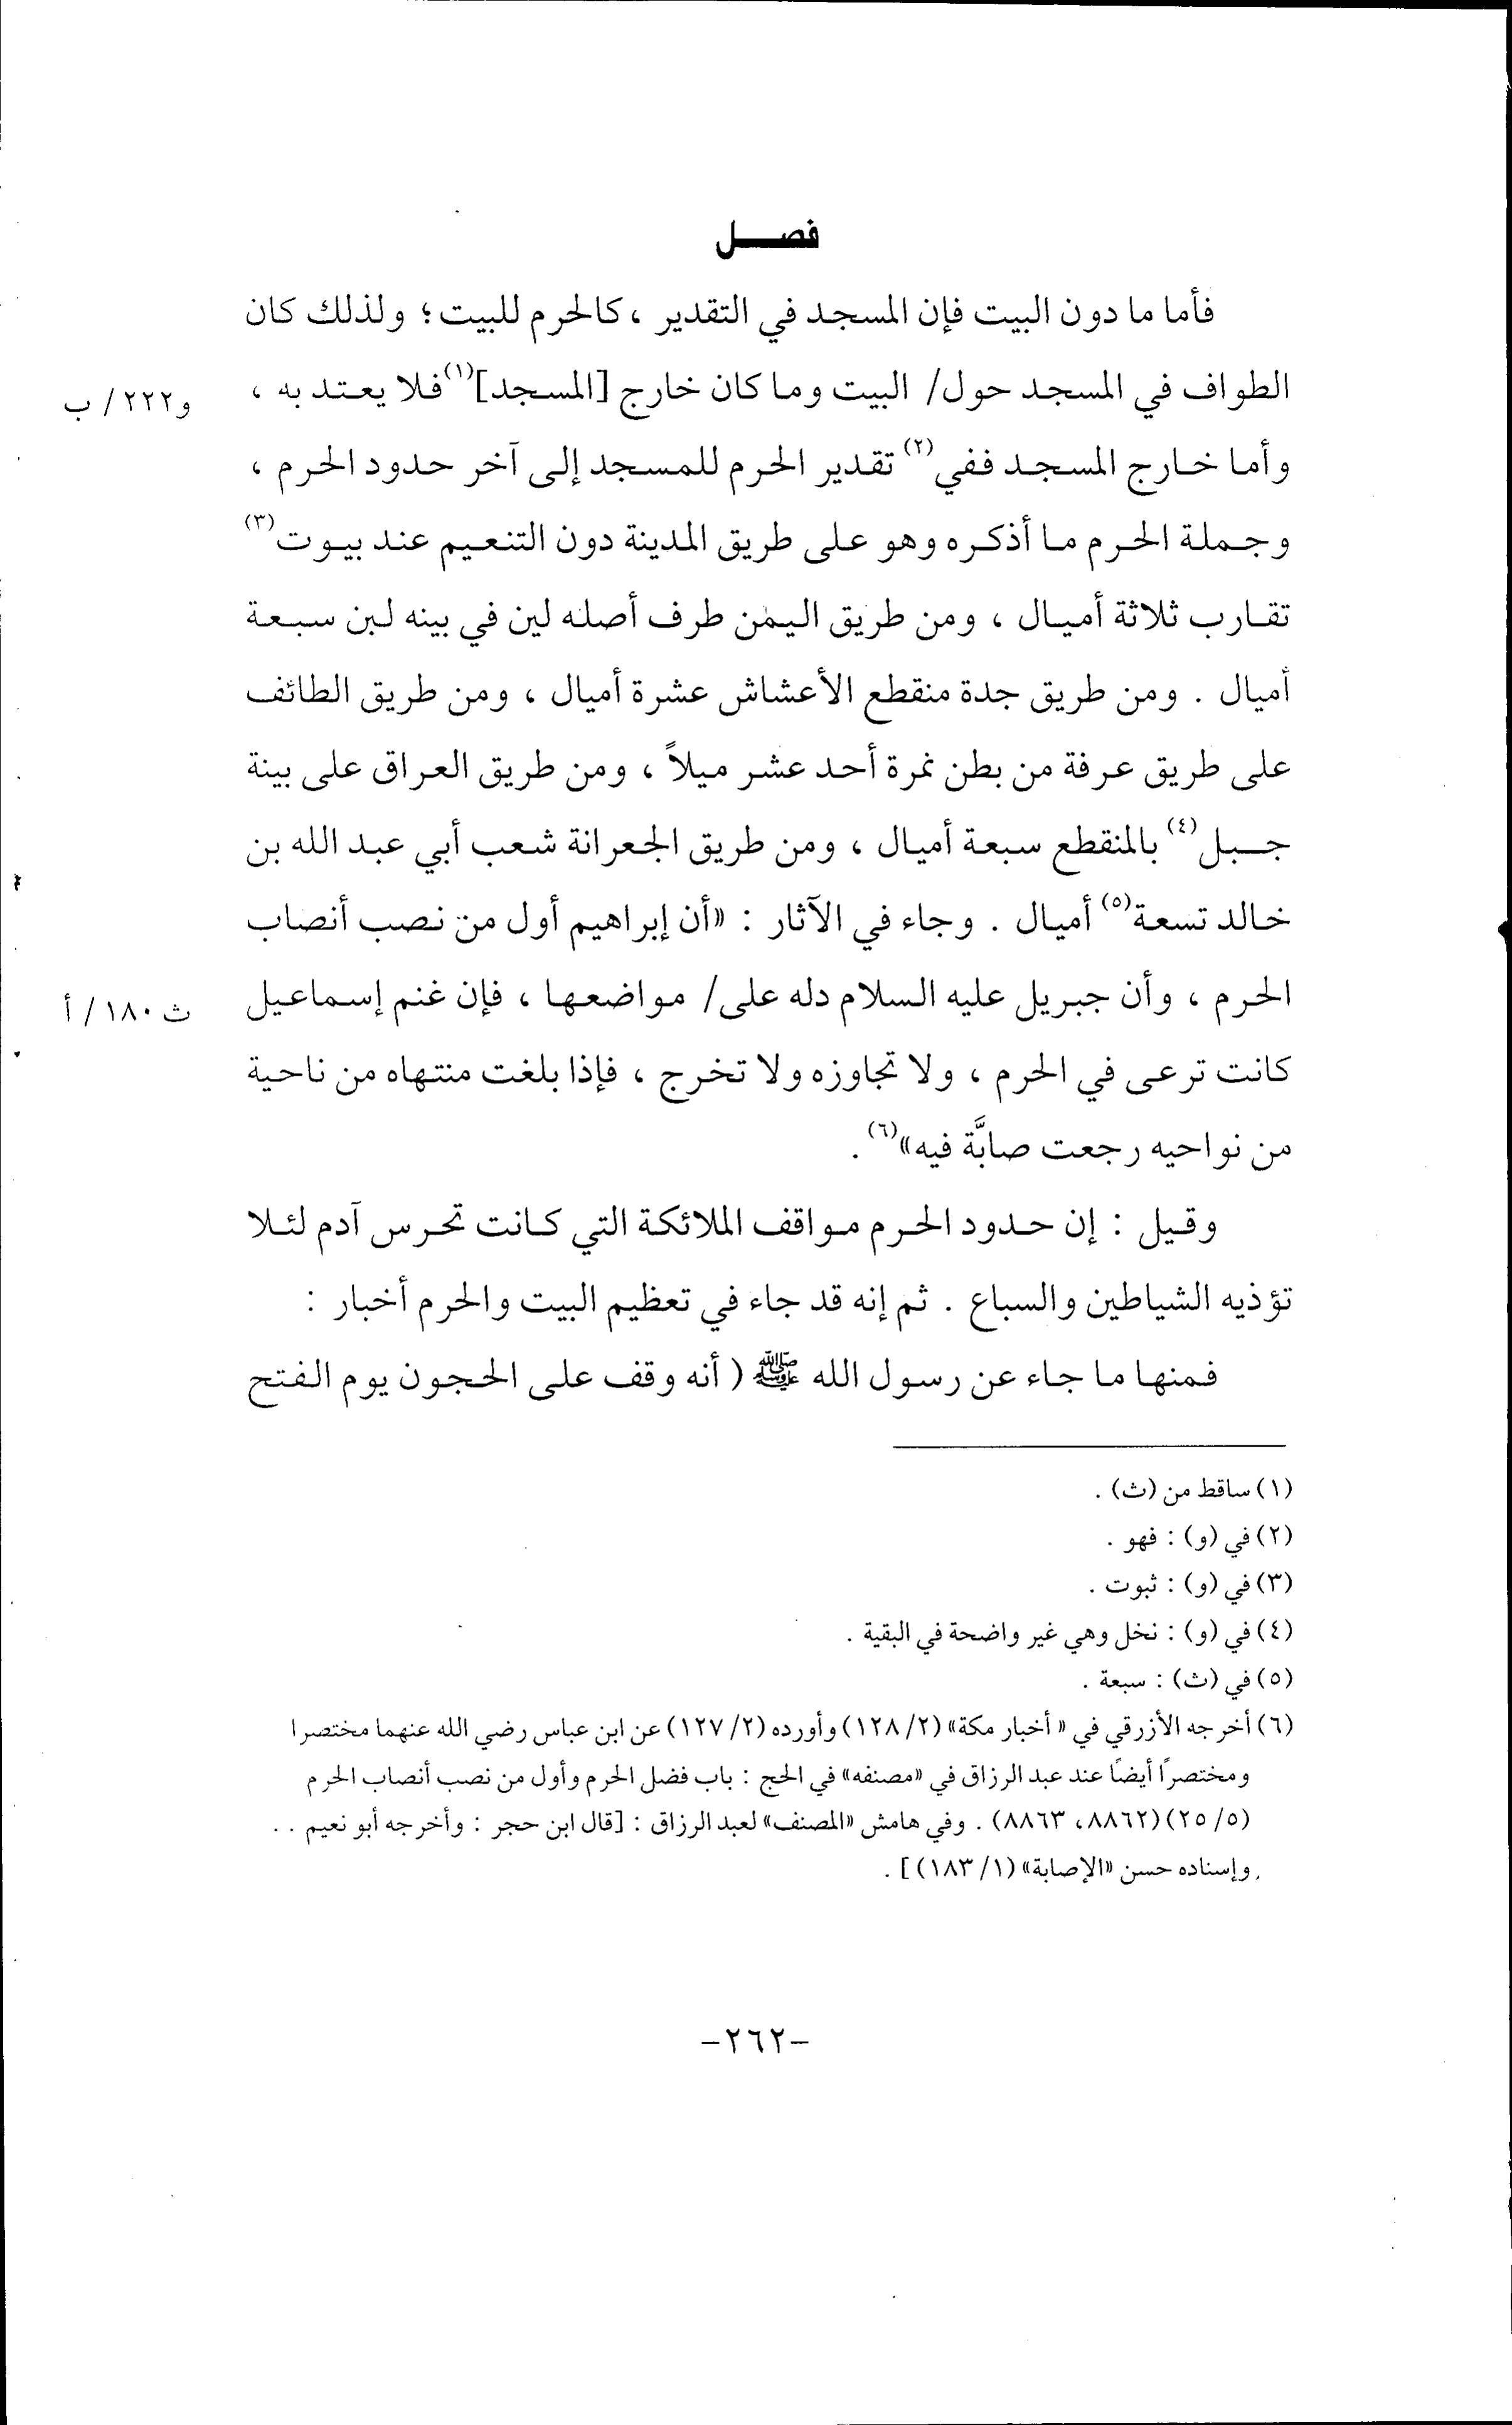 فصـــل
فأما ما دون البيت فإن المسجد في التقدير ، كالحرم للبيت ؛ ولذلك كان
الطواف في المسجد حول/ البيت وما كان خارج [المسجد](١) فلا يعتد به ،
و٢٢٢/ ب
وأما خارج المسجد ففي(٢) تقدير الحرم للمسجد إلى آخر حدود الحرم ،
وجملة الحرم ما أذكره وهو على طريق المدينة دون التنعيم عند بيوت(٣)
تقارب ثلاثة أميال ، ومن طريق اليمن طرف أصله لين في بينه لبن سبعة
أميال . ومن طريق جدة منقطع الأعشاش عشرة أميال ، ومن طريق الطائف
على طريق عرفة من بطن نمرة أحد عشر ميلاً ، ومن طريق العراق على بينة
جبل(٤) بالمنقطع سبعة أميال ، ومن طريق الجعرانة شعب أبي عبد الله بن
خالد تسعة(٥) أميال . وجاء في الآثار : «أن إبراهيم أول من نصب أنصاب
الحرم ، وأن جبريل عليه السلام دله على/ مواضعها ، فإن غنم إسماعيل
ث١٨٠/ أ
كانت ترعى في الحرم ، ولا تجاوزه ولا تخرج ، فإذا بلغت منتهاه من ناحية
من نواحيه رجعت صابَّة فيه»(٦) .
وقيل : إن حدود الحرم مواقف الملائكة التي كانت تحرس آدم لئلا
تؤذيه الشياطين والسباع . ثم إنه قد جاء في تعظيم البيت والحرم أخبار :
فمنها ما جاء عن رسول الله ﷺ ( أنه وقف على الحجون يوم الفتح
(١) ساقط من (ث) .
(٢) في (و) : فهو .
(٣) في (و) : ثبوت .
(٤) في (و) : نخل وهي غير واضحة في البقية .
(٥) في (ث) : سبعة .
(٦) أخرجه الأزرقي في « أخبار مكة» (٢/ ١٢٨) وأورده (٢/ ١٢٧) عن ابن عباس رضي الله عنهما مختصرا
ومختصرًا أيضًا عند عبد الرزاق في «مصنفه» في الحج : باب فضل الحرم وأول من نصب أنصاب الحرم
(٥/ ٢٥) (٨٨٦٢، ٨٨٦٣) . وفي هامش «المصنف» لعبد الرزاق : [قال ابن حجر : وأخرجه أبو نعيم . .
وإسناده حسن «الإصابة» (١/ ١٨٣)] .
-٢٦٢-